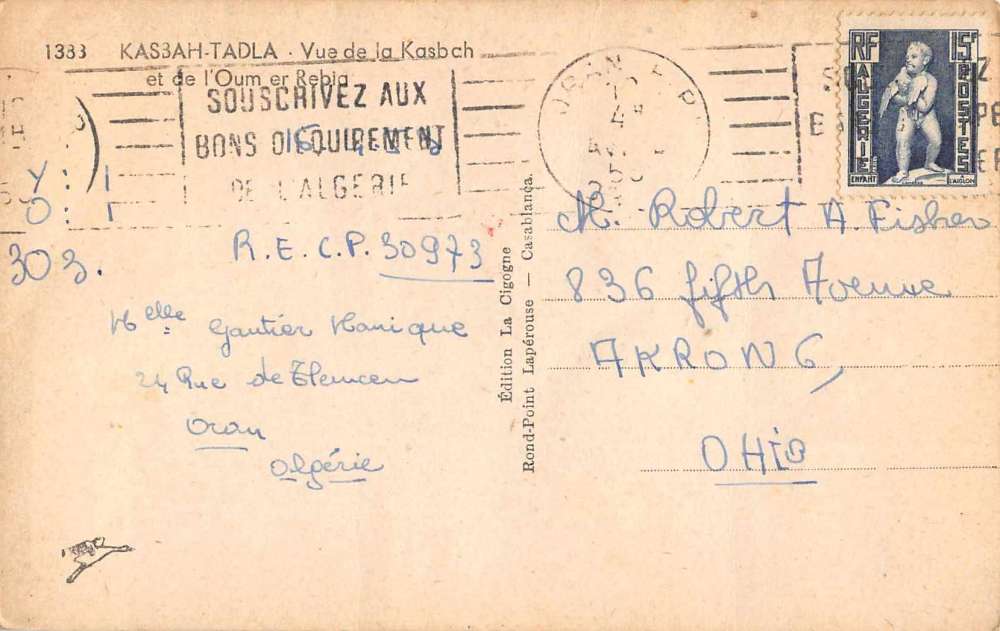 1383 KASBAH-TADLA - Vue de la Kasbah
et de l'Oum er Rebia
SOUSCRIVEZ AUX
BONS D'EQUIPEMENT
DE L'ALGERIE
ORAN R.P.
RF
15F
ALGERIE
POSTES
ENFANT
L'AIGLON
Y : 1
O : 1
303.
R.E.C.P. 30973
Melle Gautier Monique
24 Rue de Tlemcen
Oran
Algérie
Édition La Cigogne
Rond-Point Lapérouse — Casablanca.
M. Robert A. Fisher
836 fifth Avenue
AKRON 6,
OHIO